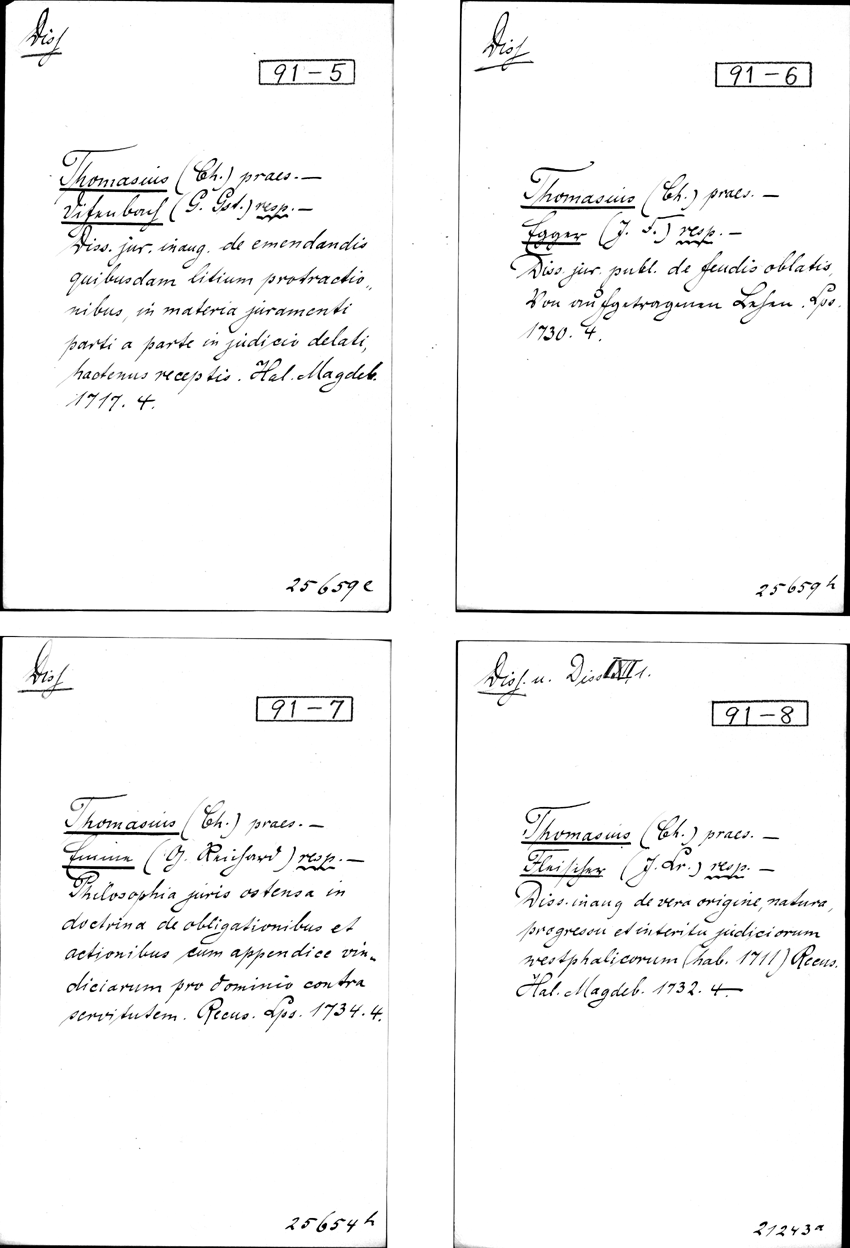 Diss
91-5
Thomasius (Ch.) praes. —
Uffenbach (G. Gst.) resp. —
Diss. jur. inaug. de emendandis
quibusdam litium protractio-
nibus, in materia juramenti
parti a parte in judicio delati,
hactenus receptis. Hal. Magdeb.
1717. 4.
25659e
Diss
91-6
Thomasius (Ch.) praes. —
Egger (J. F.) resp. —
Diss. jur. publ. de feudis oblatis,
Von aufgetragenen Lehen. Lps.
1730. 4.
25659h
Diss
91-7
Thomasius (Ch.) praes. —
(G. Reichard) resp. —
Philosophia juris ostensa in
doctrina de obligationibus et
actionibus cum appendice vin-
diciarum pro dominio contra
servitutem. Recus. Lps. 1734. 4.
25654h
Diss. u. Diss 1.
91-8
Thomasius (Ch.) praes. —
Fleischer (J. Lr.) resp. —
Diss. inaug de vera origine, natura,
progressu et interitu judiciorum
westphalicorum (hab. 1711) Recus.
Hal. Magdeb. 1732. 4. —
21243a